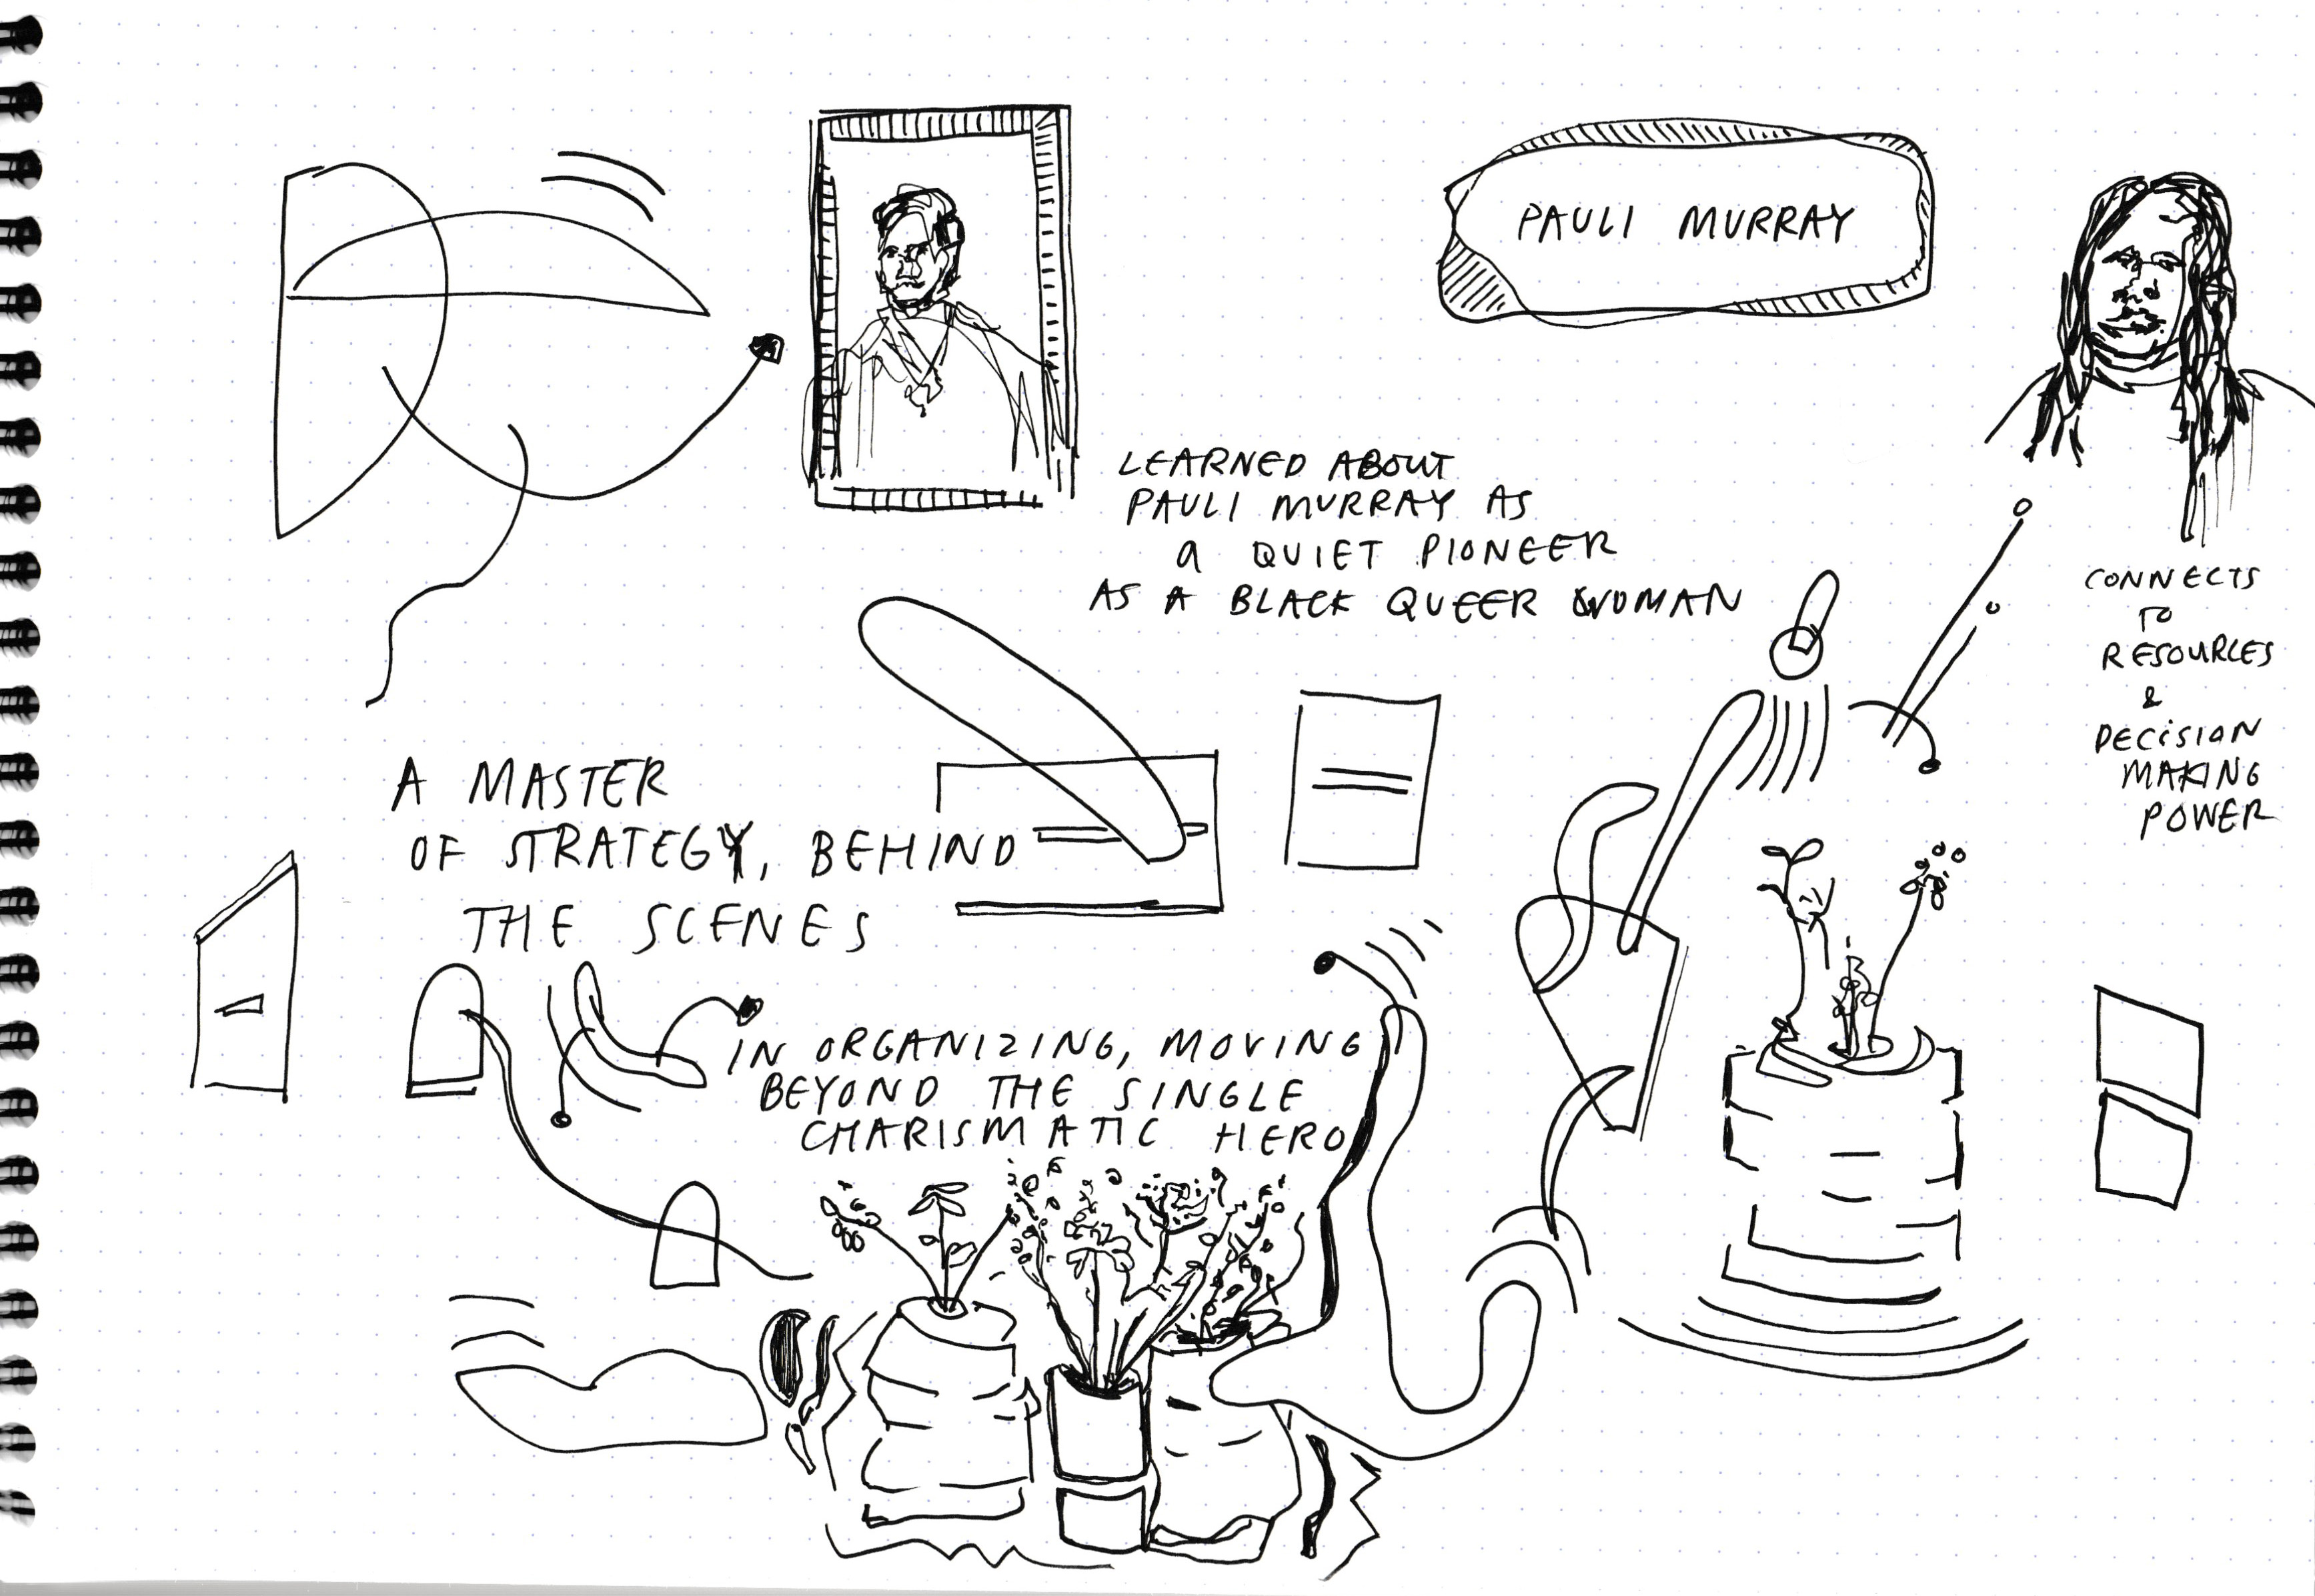 PAULI MURRAY
LEARNED ABOUT
PAULI MURRAY AS
a QUIET PIONEER
AS A BLACK QUEER WOMAN
CONNECTS
TO
RESOURCES
&
DECISION
MAKING
POWER
A MASTER
OF STRATEGY, BEHIND
THE SCENES
IN ORGANIZING, MOVING
BEYOND THE SINGLE
CHARISMATIC HERO